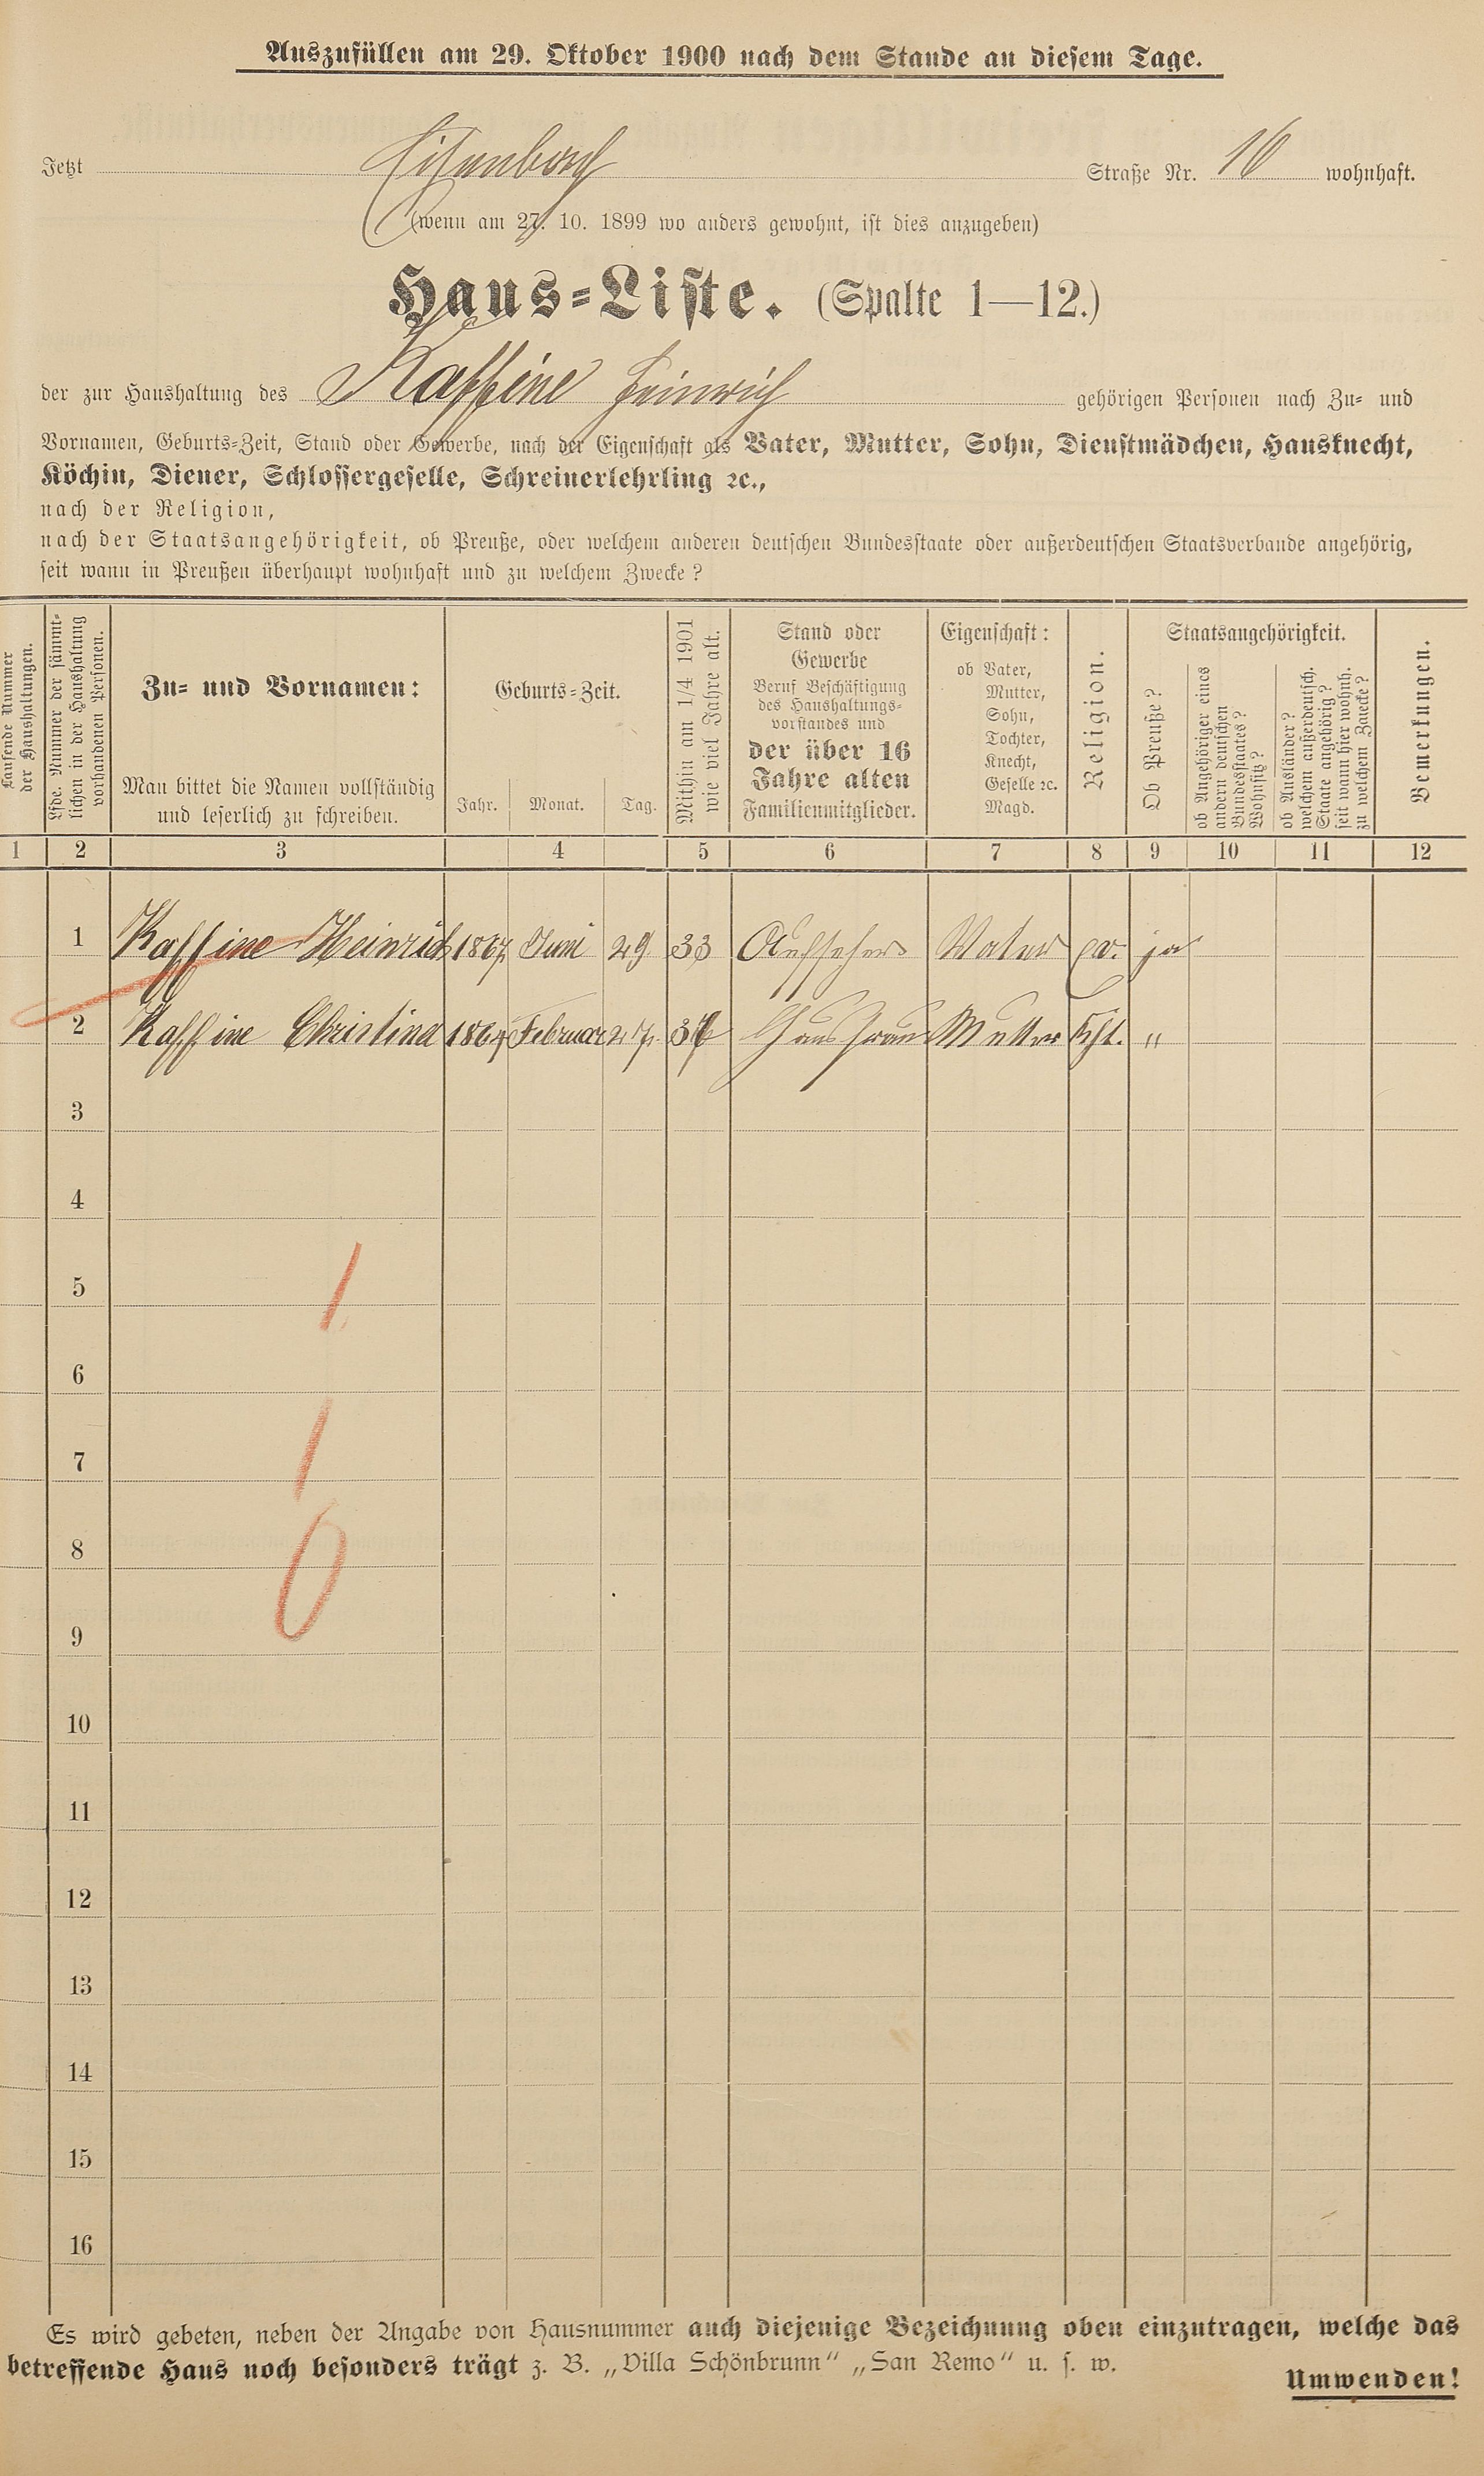 Auszufüllen am 29. Oktober 1900 nach dem Stande an diesem Tage.
Jetzt Straße Nr. 16 wohnhaft.
(wenn am 27. 10. 1899 wo anders gewohnt, ist dies anzugeben)
Haus=Liste. (Spalte 1—12.)
der zur Haushaltung des Kaffine Heinrich gehörigen Personen nach Zu= und
Vornamen, Geburts=Zeit, Stand oder Gewerbe, nach der Eigenschaft als Vater, Mutter, Sohn, Dienstmädchen, Hausknecht,
Köchin, Diener, Schlossergeselle, Schreinerlehrling ꝛc.,
nach der Religion,
nach der Staatsangehörigkeit, ob Preuße, oder welchem anderen deutschen Bundesstaate oder außerdeutschen Staatsverbande angehörig,
seit wann in Preußen überhaupt wohnhaft und zu welchem Zwecke?
Laufende Nummer
der Haushaltungen.
Lfde. Nummer der sämmt-
lichen in der Haushaltung
vorhandenen Personen.
Zu= und Vornamen:
Man bittet die Namen vollständig
und leserlich zu schreiben.
Geburts=Zeit.
Jahr. Monat. Tag.
Mithin am 1/4 1901
wie viel Jahre alt.
Stand oder
Gewerbe
Beruf Beschäftigung
des Haushaltungs-
vorstandes und
der über 16
Jahre alten
Familienmitglieder.
Eigenschaft:
ob Vater,
Mutter,
Sohn,
Tochter,
Knecht,
Geselle ꝛc.
Magd.
Religion.
Staatsangehörigkeit.
Ob Preuße?
ob Angehöriger eines
andern deutschen
Bundesstaates?
Wohnsitz?
ob Ausländer?
welchem außerdeutsch.
Staate angehörig?
seit wann hier wohnh.
zu welchem Zwecke?
Bemerkungen.
1 2 3 4 5 6 7 8 9 10 11 12
1 Kaffine Heinrich 1867 Juni 29 33 Aufseher Vater ev. ja
2 Kaffine Christina Februar 27. Hausfrau Mutter Kht. "
3
4
5
6
7
8
9
10
11
12
13
14
15
16
1
1
0
Es wird gebeten, neben der Angabe von Hausnummer auch diejenige Bezeichnung oben einzutragen, welche das
betreffende Haus noch besonders trägt z. B. „Villa Schönbrunn" „San Remo" u. s. w.
Umwenden!